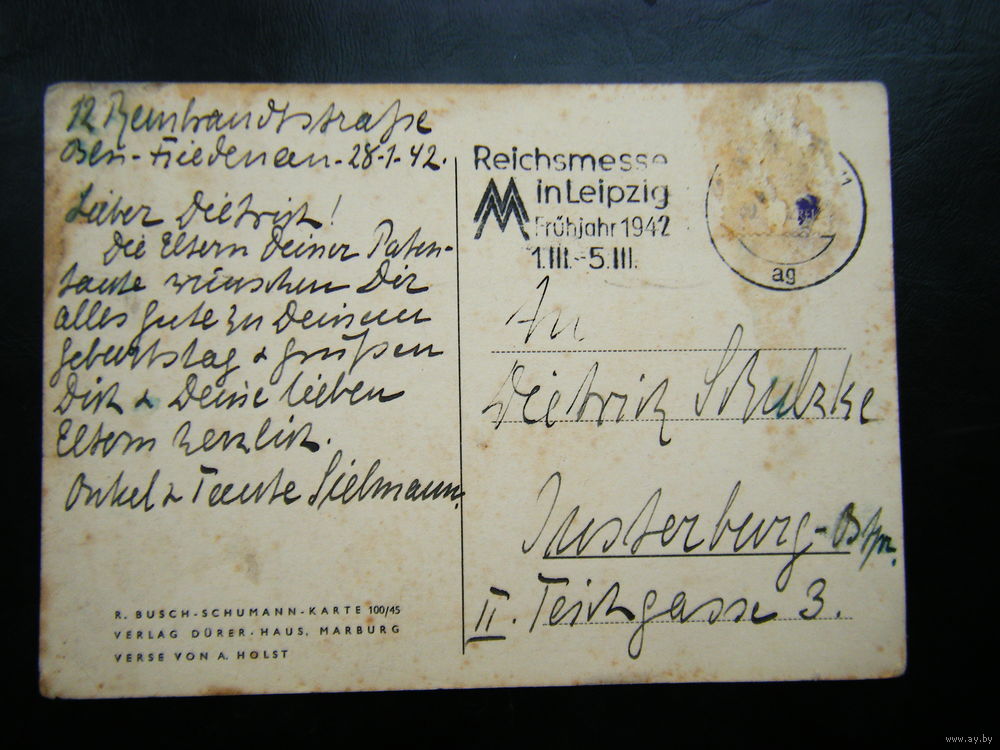 12 Rembrandtstraße
Bln-Friedenau-28-1-42.
Lieber Dietrich!
Die Eltern Deiner Paten-
tante wünschen Dir
alles Gute zu Deinem
Geburtstag & grüßen
Dich & Deine lieben
Eltern herzlich.
Onkel & Tante Sielmann.
R. BUSCH-SCHUMANN-KARTE 100/45
VERLAG DÜRER-HAUS, MARBURG
VERSE VON A. HOLST
Reichsmesse
in Leipzig
Frühjahr 1942
1.III.-5.III.
ag
An
Dietrich Schulzke
Insterburg-Ostpr.
II. Teichgasse 3.
www.ay.by